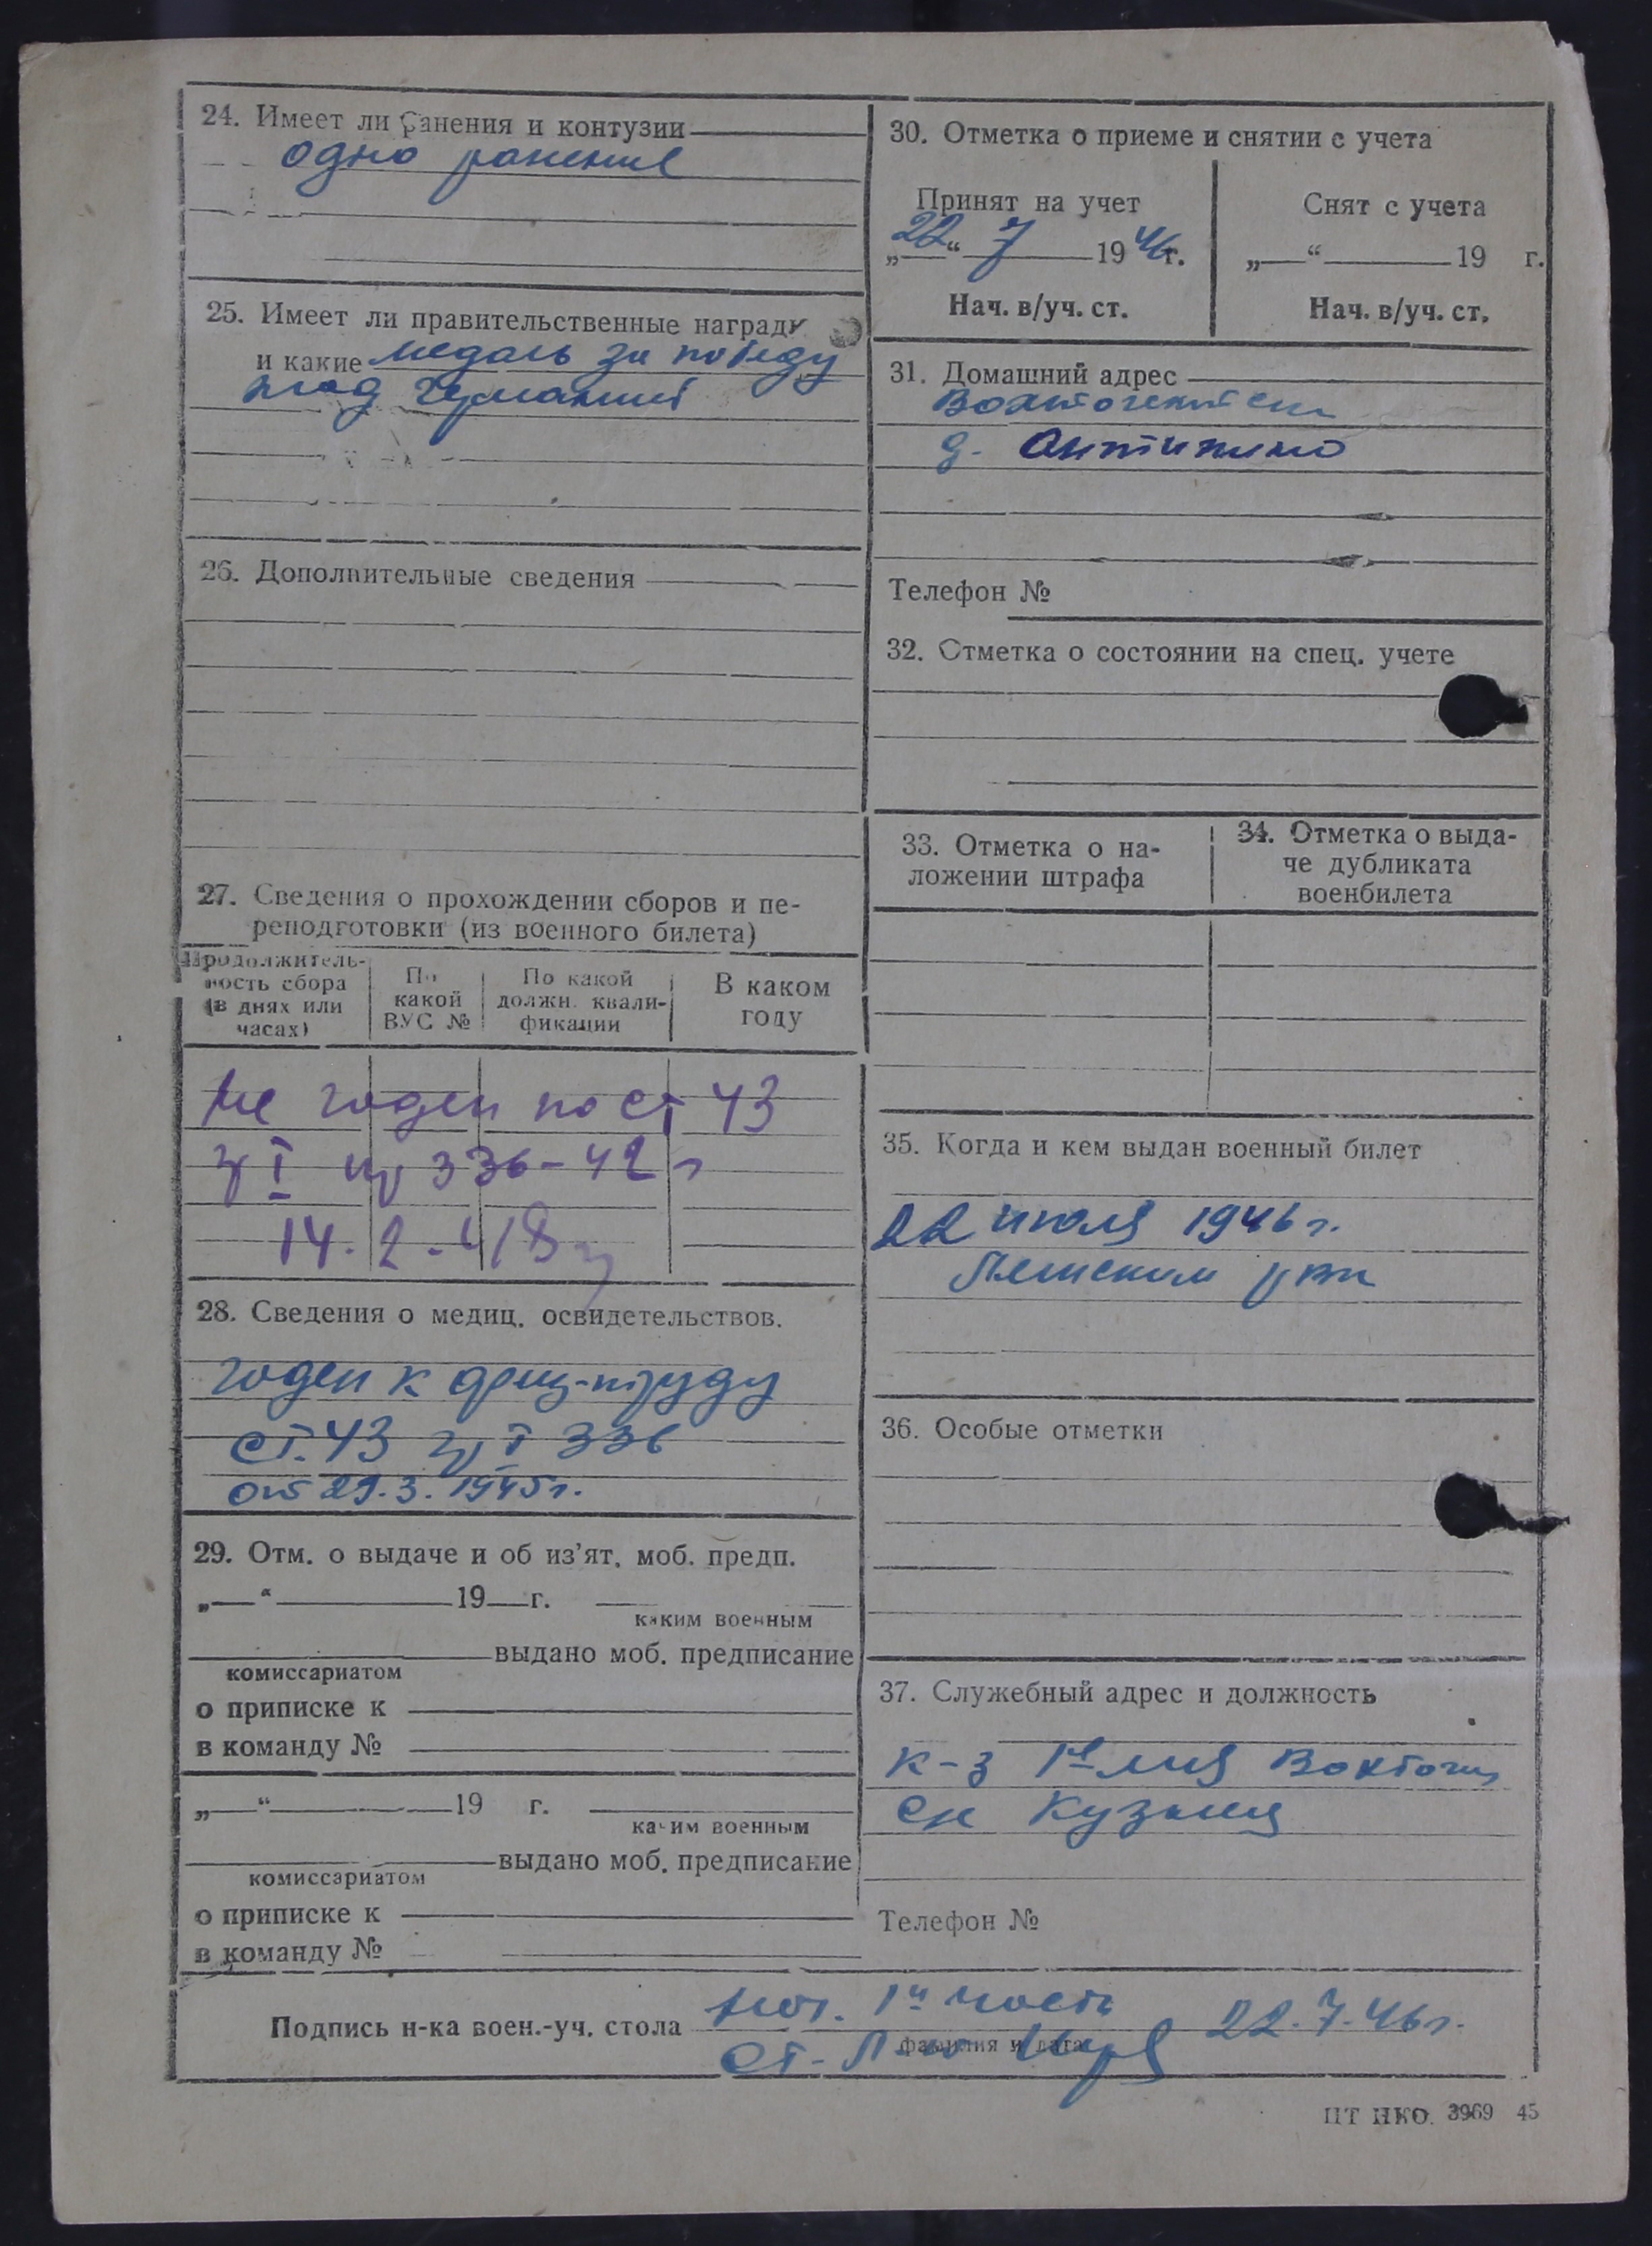 24. Имеет ли ранения и контузии
одно ранение
25. Имеет ли правительственные награды
и какие медаль за победу
над Германией
26. Дополнительные сведения
27. Сведения о прохождении сборов и пе-
реподготовки (из военного билета)
Продолжитель-
ность сбора
(в днях или
часах)
По
какой
ВУС №
По какой
должн. квали-
фикации
В каком
году
Не годен по ст 43
гр I пр 336-42 г
14.2.48 г
28. Сведения о медиц. освидетельствов.
годен к физ-труду
ст. 43 гр I 336
от 29.3.1945 г.
29. Отм. о выдаче и об из'ят. моб. предп.
„ “ 19 г.
каким военным
выдано моб. предписание
комиссариатом
о приписке к
в команду №
„ “ 19 г.
каким военным
выдано моб. предписание
комиссариатом
о приписке к
в команду №
30. Отметка о приеме и снятии с учета
Принят на учет
„22“ 7 1946г.
Нач. в/уч. ст.
Снят с учета
„ “ 19 г.
Нач. в/уч. ст.
31. Домашний адрес
д. Антипино
Телефон №
32. Отметка о состоянии на спец. учете
33. Отметка о на-
ложении штрафа
34. Отметка о выда-
че дубликата
военбилета
35. Когда и кем выдан военный билет
22 июля 1946 г.
рвк
36. Особые отметки
37. Служебный адрес и должность
к-з 1е мая
Кузнец
Телефон №
Подпись н-ка воен.-уч. стола Нач. 1й части
фамилия и дата
ст. л-т 22.7.46 г.
ПТ НКО. 3969 45